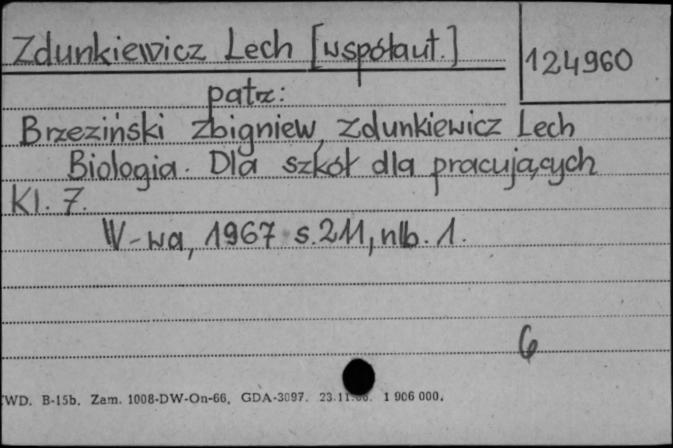 Zdunkiewicz Lech [współaut.]
124960
patrz:
Brzeziński Zbigniew, Zdunkiewicz Lech
Biologia. Dla szkół dla pracujących
Kl. 7.
W-wa, 1967 s. 211, nlb. 1.
6
WD. B-15b. Zam. 1008-DW-On-66. GDA-3097. 23.11.66. 1 906 000.